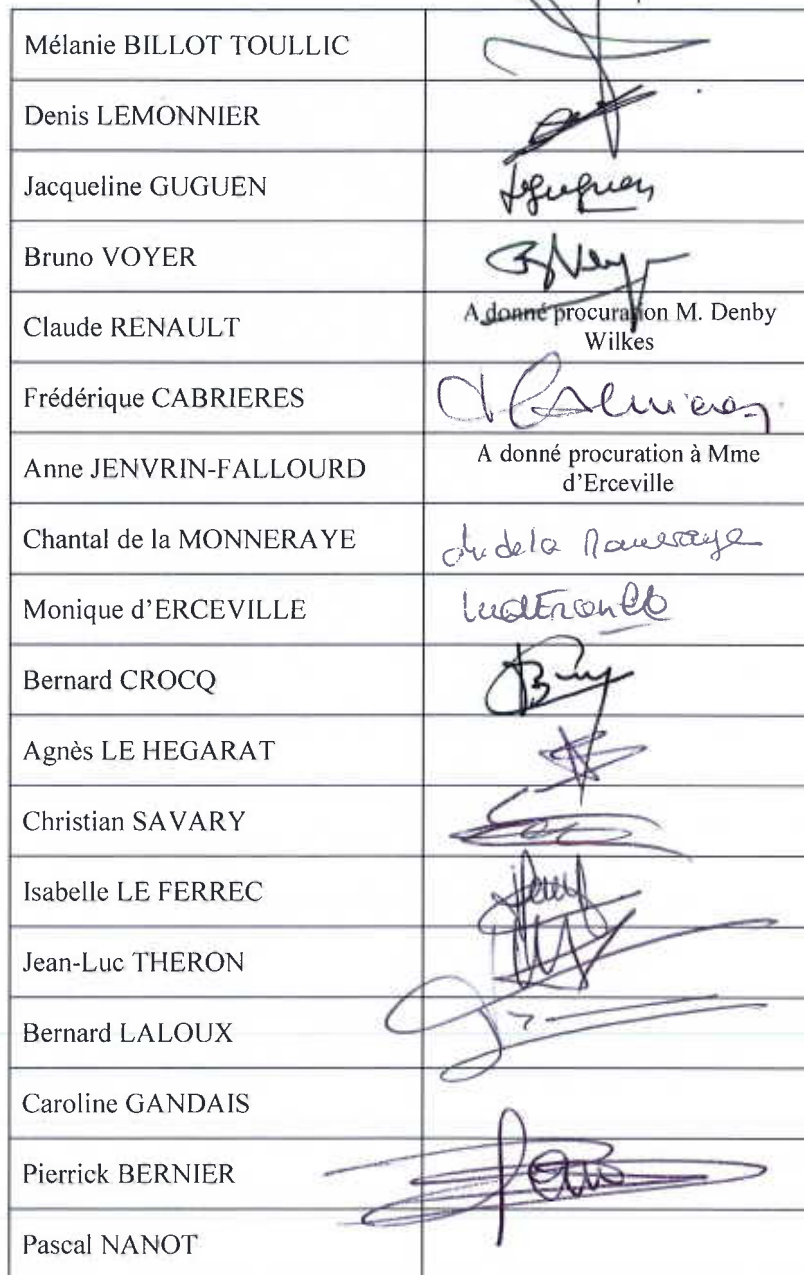 Mélanie BILLOT TOULLIC
Denis LEMONNIER
Jacqueline GUGUEN
JGuguen
Bruno VOYER
Claude RENAULT
A donné procuration M. Denby
Wilkes
Frédérique CABRIERES
Anne JENVRIN-FALLOURD
A donné procuration à Mme
d'Erceville
Chantal de la MONNERAYE
Monique d'ERCEVILLE
Bernard CROCQ
Agnès LE HEGARAT
Christian SAVARY
Isabelle LE FERREC
Jean-Luc THERON
Bernard LALOUX
Caroline GANDAIS
Pierrick BERNIER
Pascal NANOT